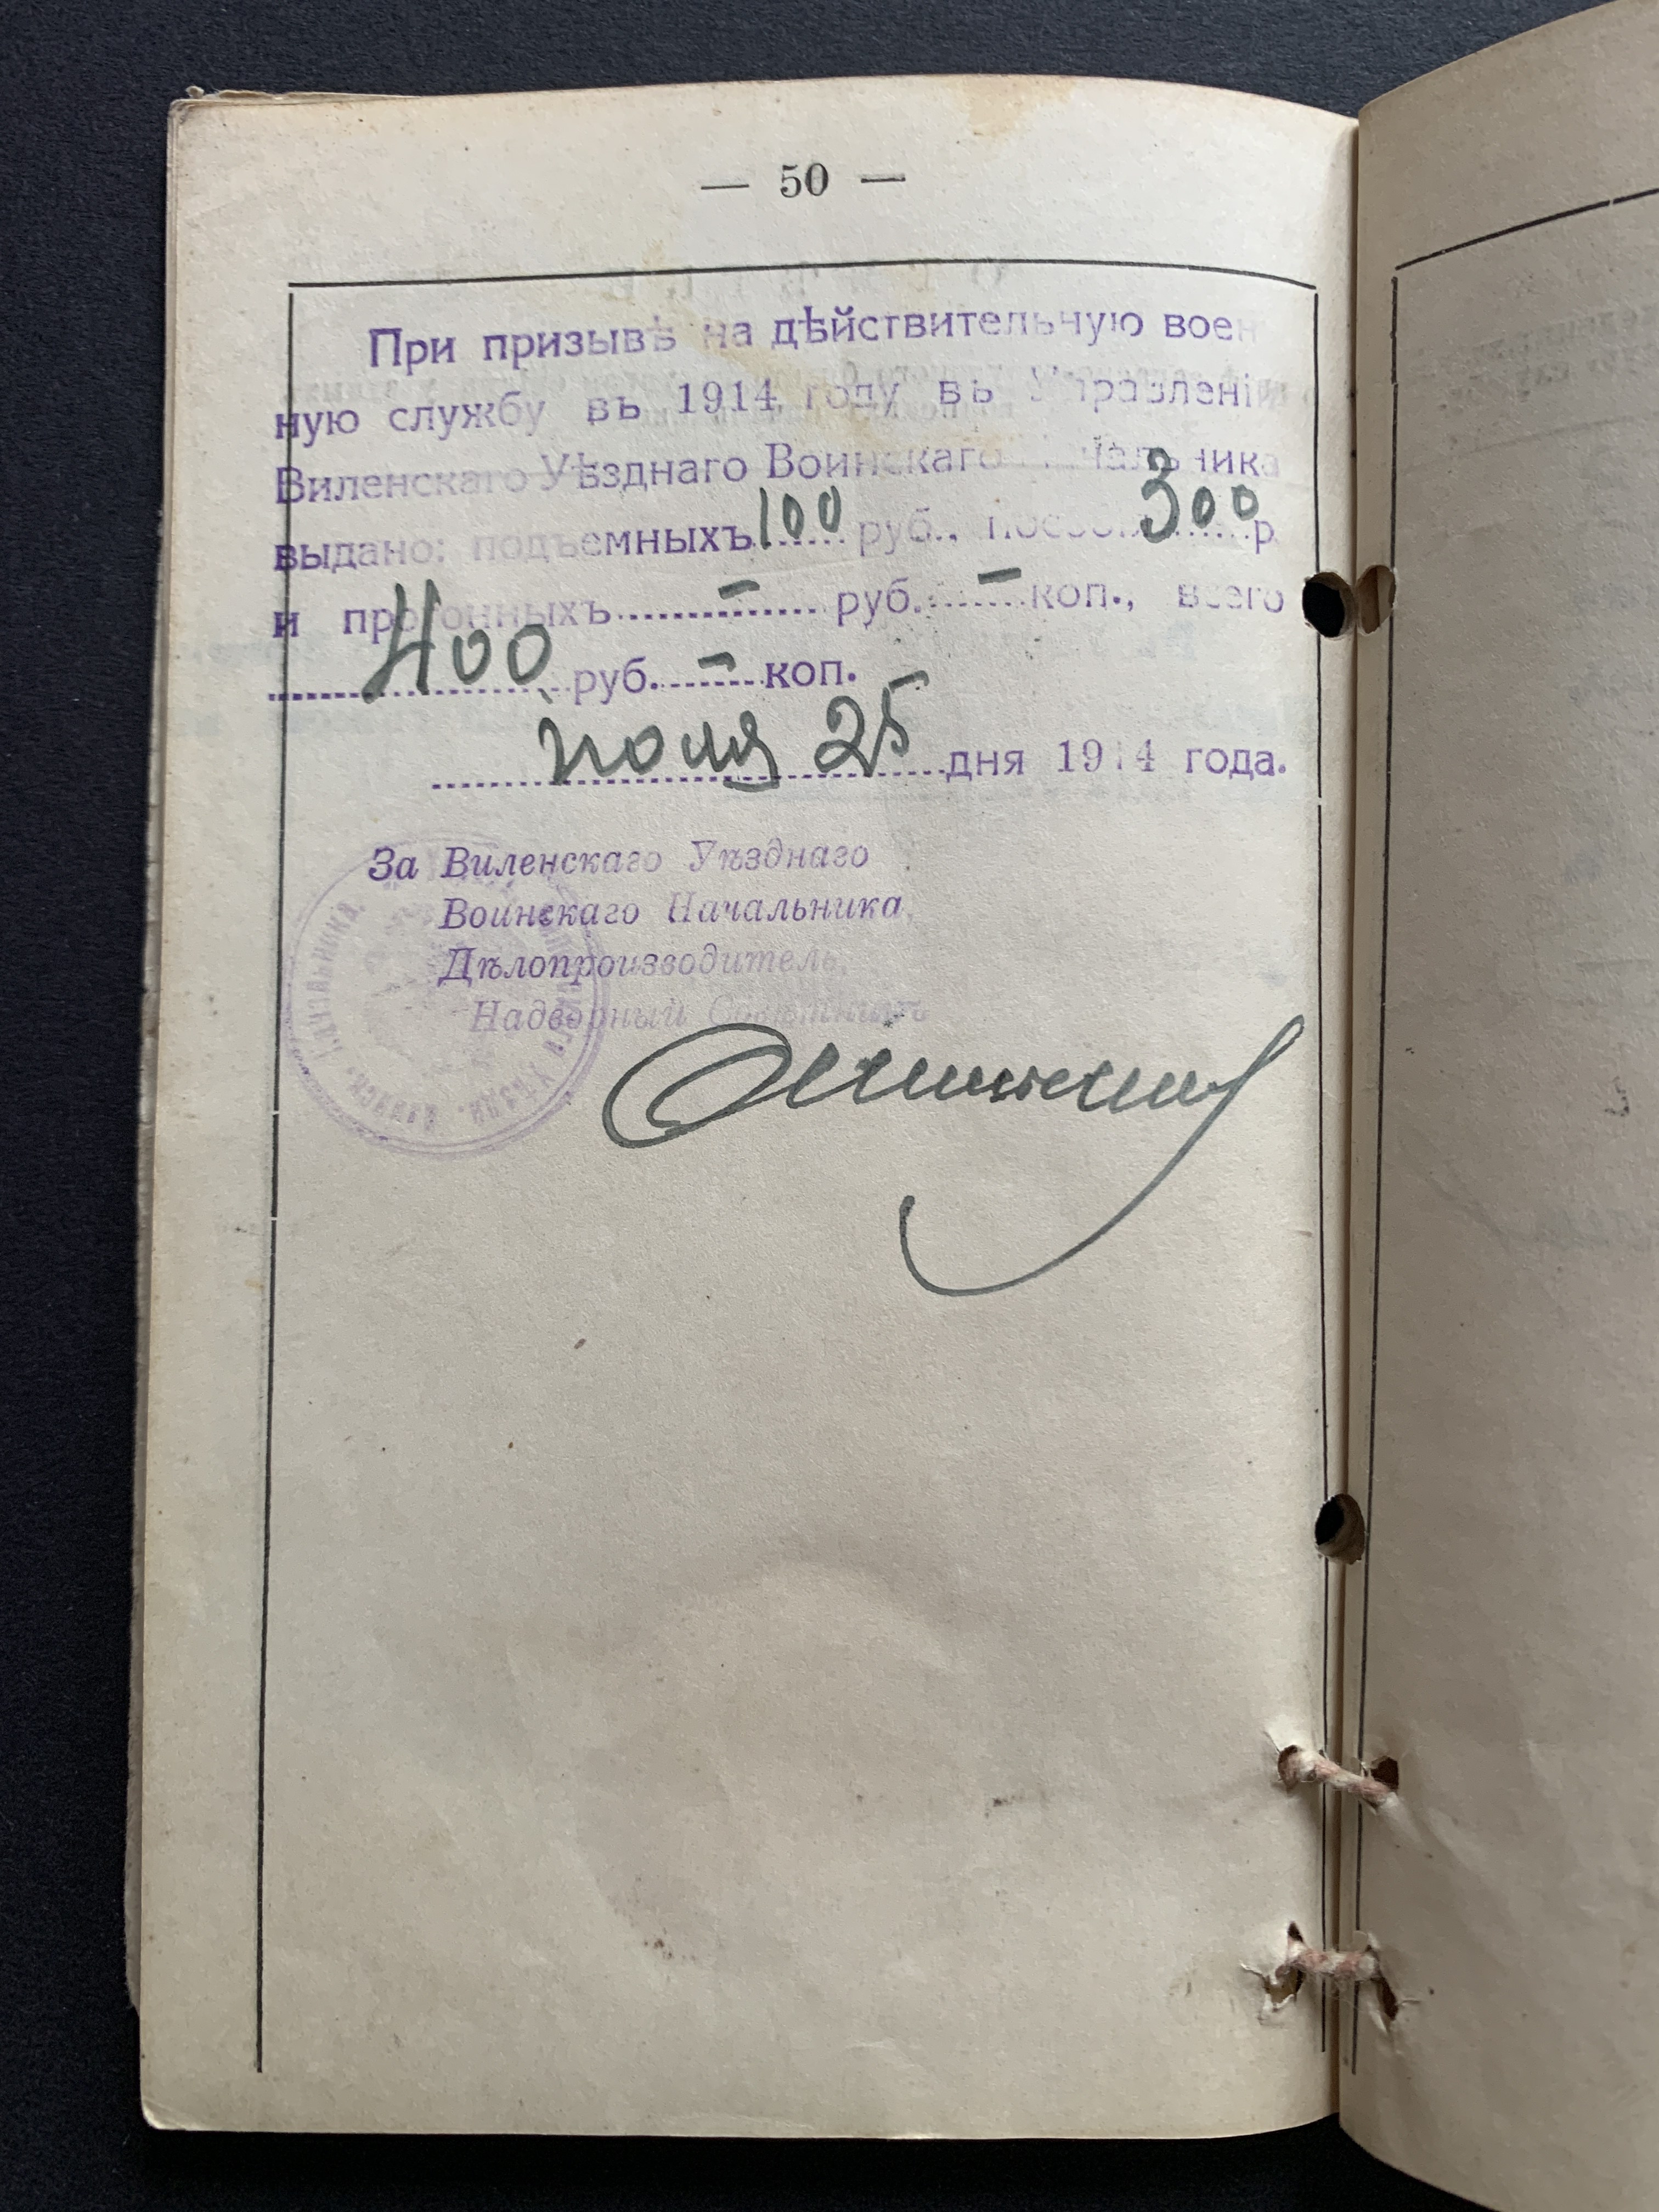 — 50 —
При призывѣ на дѣйствительную воен
ную службу въ 1914 году въ Управленіи
Виленскаго Уѣзднаго Воинскаго Начальника
выдано: подъемныхъ 100 руб., пособія 300 р.
и прогонныхъ — руб. — коп., всего
400 руб. — коп.
іюля 25 дня 1914 года.
За Виленскаго Уѣзднаго
Воинскаго Начальника,
Дѣлопроизводитель,
Надворный Совѣтникъ